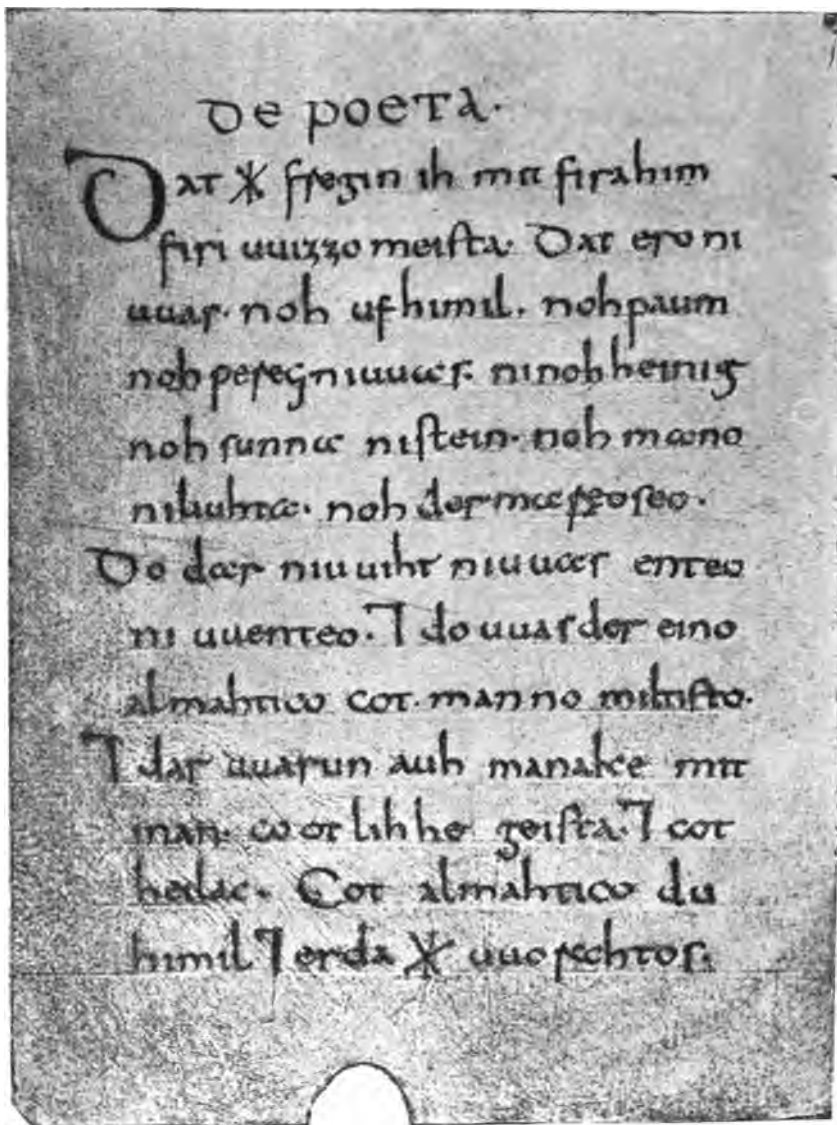 De poeta.
Dat ᚼ fregin ih mit firahim
firi uuizzo meista. Dat ero ni
uuas. noh ufhimil. noh paum
noh pereg ni uuas. ni nohheinig
noh sunna ni stein. noh mano
ni liuhta. noh der mareo seo.
Do dar niuuiht ni uuas enteo
ni uuenteo. ⁊ do uuas der eino
almahtico cot. manno miltisto.
⁊ dar uuarun auh manake mit
inan. cootlihhe geista. ⁊ cot
heilac. Cot almahtico du
himil ⁊ erda ᚼ uuorahtos.